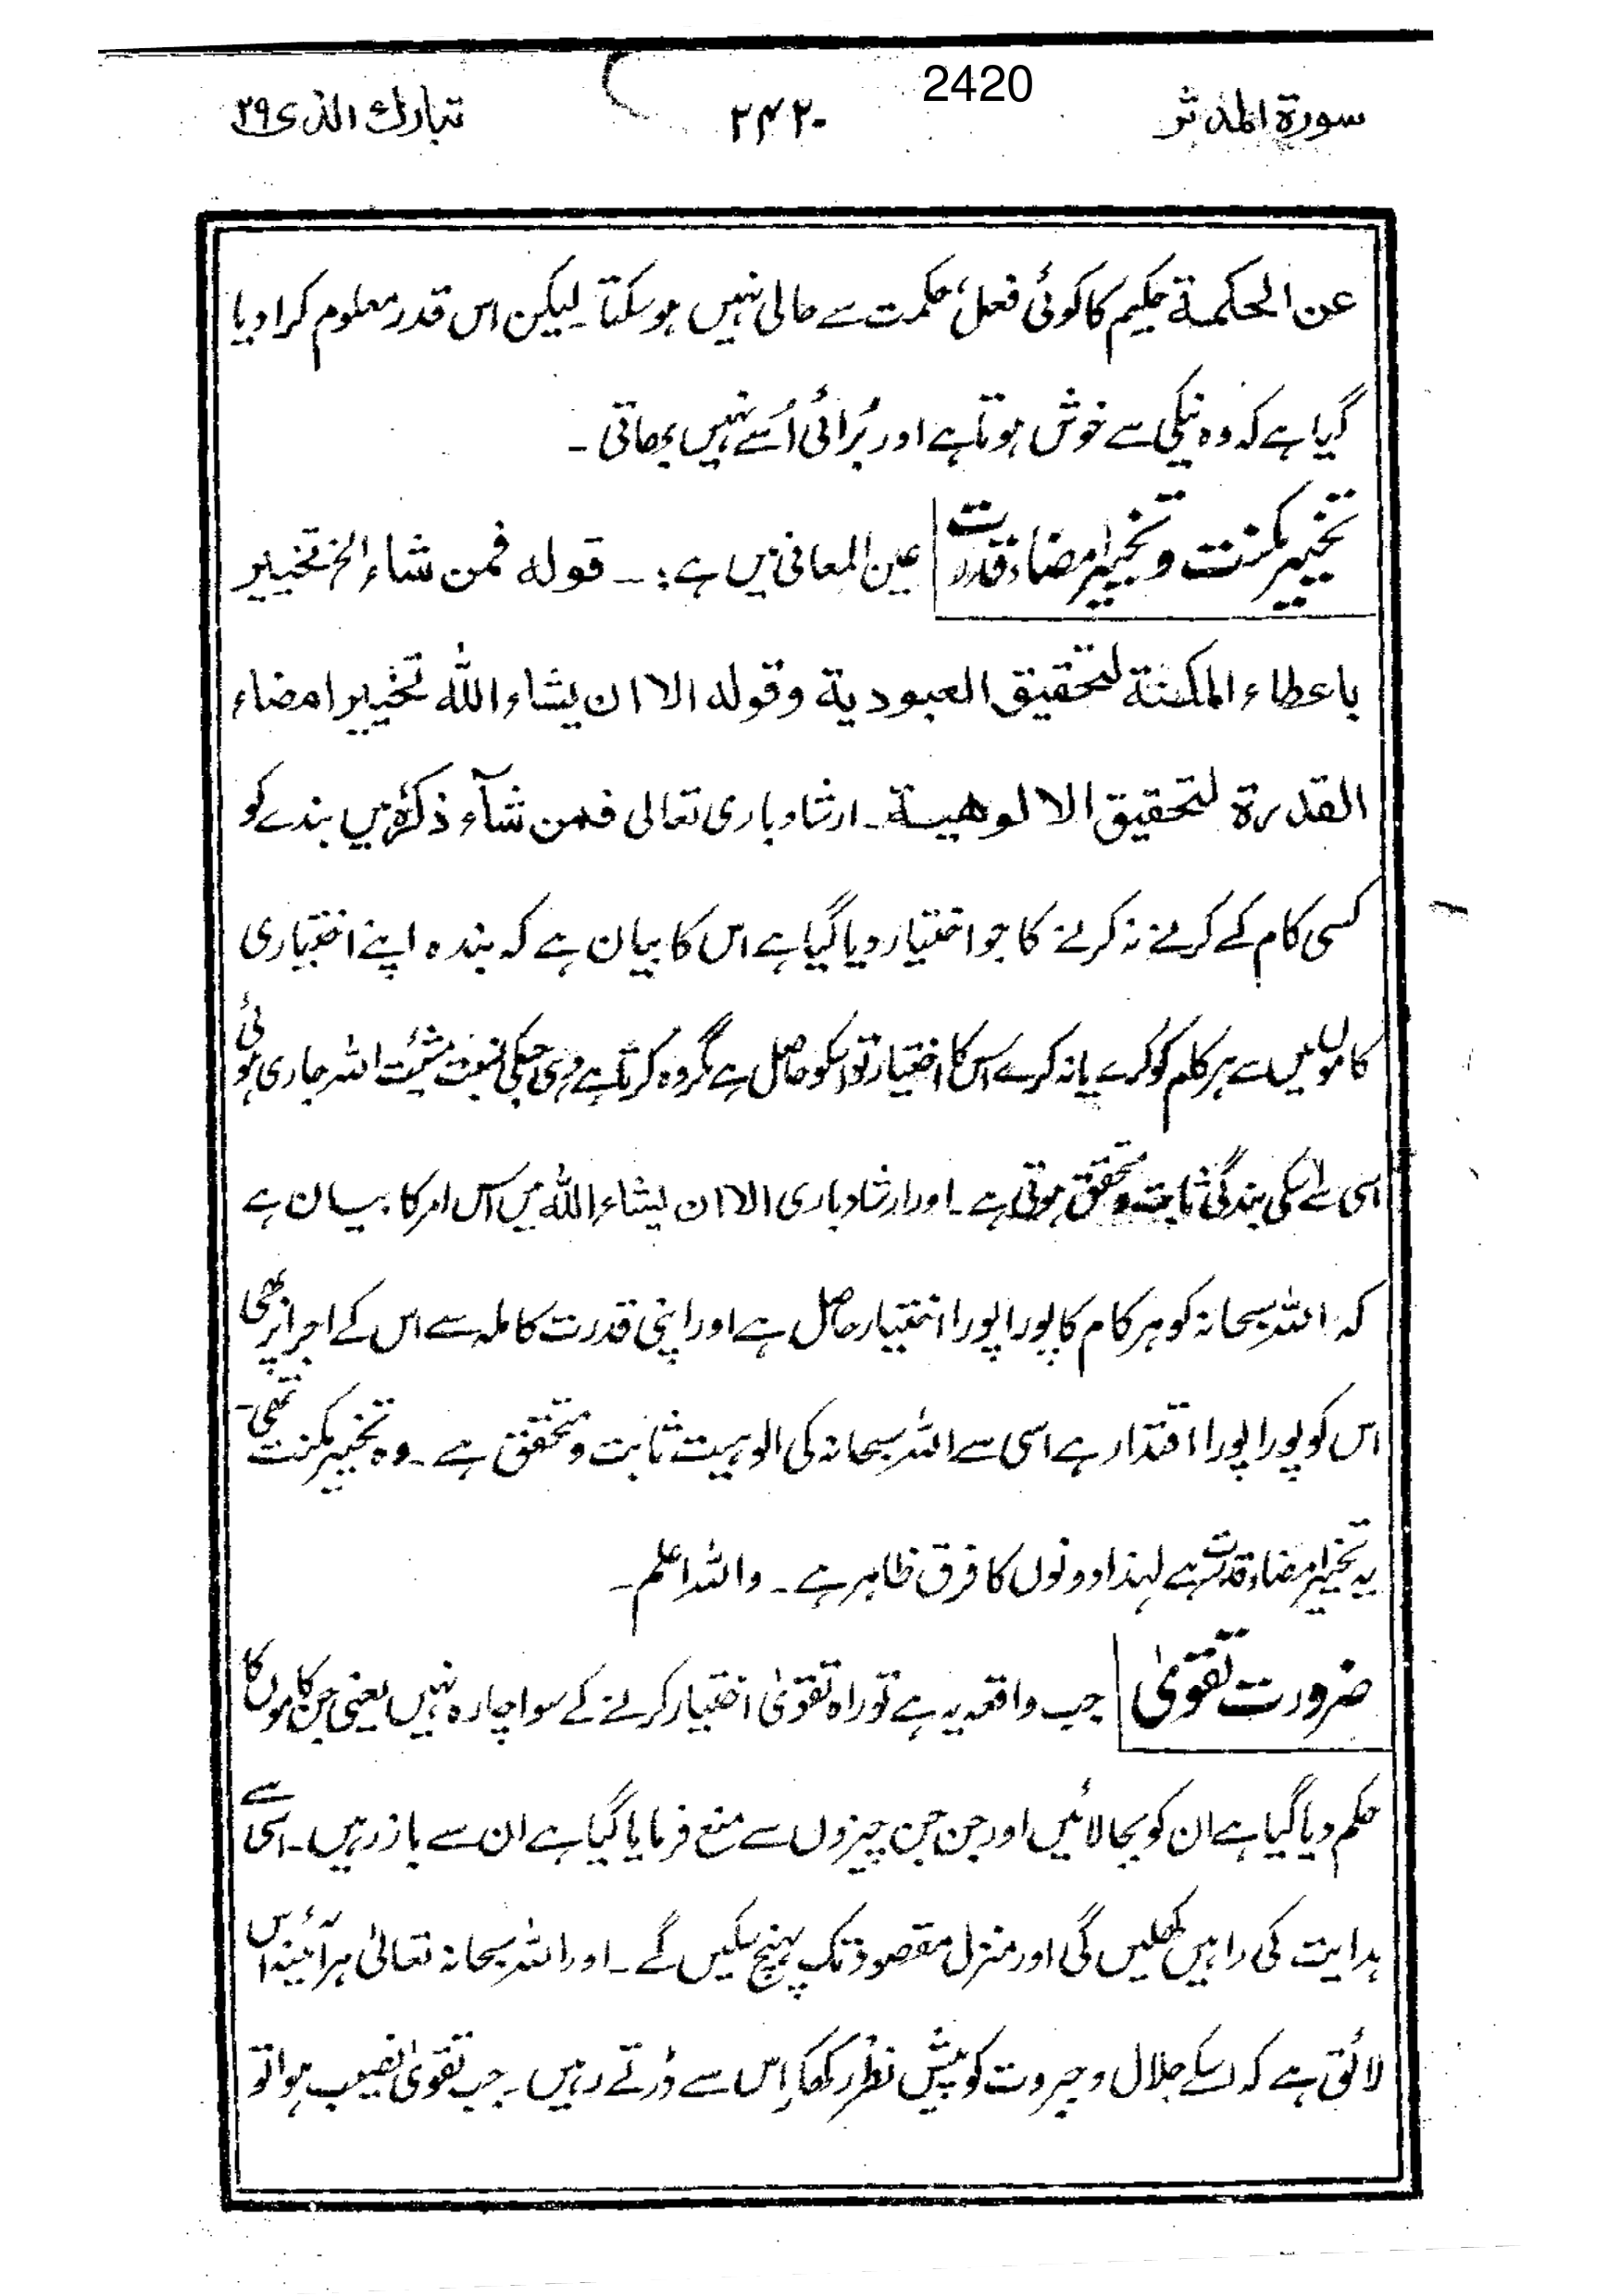 2420
سورة المدثر ۲۴۲۰ تبارك الذی ۲۹
عن الحكمة حکیم کا کوئی فعل، حکمت سے خالی نہیں ہو سکتا۔ لیکن اس قدر معلوم کرا دیا
گیا ہے کہ وہ نیکی سے خوش ہوتا ہے اور بُرائی اُسے نہیں بھاتی ۔
تخییر مکنت و تخییر امضاء قدرت عین المعانی میں ہے :۔ قوله فمن شاء الخ تخيير
باعطاء المكنة لتحقيق العبودية وقوله الا ان يشاء الله تخيير امضاء
القدرة لتحقيق الالوهية ۔ ارشاد باری تعالی فمن شآء ذکرہٗ میں بندے کو
کسی کام کے کرنے نہ کرنے کا جو اختیار دیا گیا ہے اس کا بیان ہے کہ بندہ اپنے اختیاری
کاموں میں سے ہر کام کو کرے یا نہ کرے اس کا اختیار تو اسکو حاصل ہے مگر وہ کرتا ہے وہی جسکی نسبت مشیّت اللہ جاری ہوئی
اسی سے اسکی بندگی ثابت و متحقق ہوتی ہے ۔ اور ارشاد باری الا ان یشاء اللہ میں اس امر کا بیان ہے
کہ اللہ سبحانہ کو ہر کام کا پورا پورا اختیار حاصل ہے اور اپنی قدرت کاملہ سے اس کے اجرا پر بھی
اس کو پورا پورا اقتدار ہے اسی سے اللہ سبحانہ کی الوہیت ثابت و متحقق ہے ۔ وہ تخییر مکنت تھی ۔
یہ تخییر امضاء قدرت ہے لہذا دونوں کا فرق ظاہر ہے ۔ واللہ اعلم ۔
ضرورت تقویٰ جب واقعہ یہ ہے تو راہ تقویٰ اختیار کرنے کے سوا چارہ نہیں یعنی جن کاموں کا
حکم دیا گیا ہے ان کو بجا لائیں اور جن جن چیزوں سے منع فرمایا گیا ہے ان سے باز رہیں۔ اسی سے
ہدایت کی راہیں کھلیں گی اور منزل مقصود تک پہنچ سکیں گے ۔ اور اللہ سبحانہ تعالیٰ ہر آئینہ اس
لائق ہے کہ اسکے جلال و جبروت کو پیش نظر رکھکر اِس سے ڈرتے رہیں ۔ جب تقویٰ نصیب ہوا تو